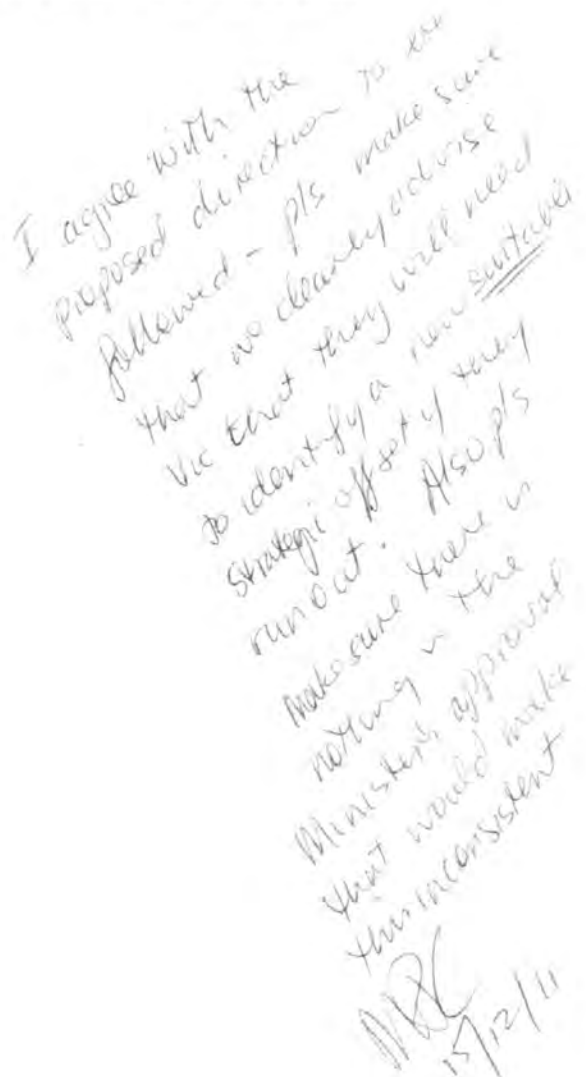 I agree with the
proposed direction to be
followed - pls make sure
that we clearly advise
Vic that they will need
to identify a new suitable
strategic offset if they
run out. Also pls
make sure there is
nothing in the
Minister's approval
that would make
this inconsistent
15/12/11